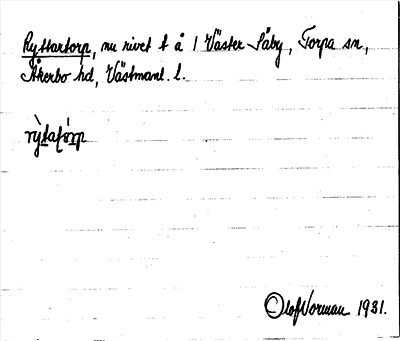 Ryttartorp, nu rivet t å 1 Väster Såby, Torpa sn,
Åkerbo hd, Västmanl. l.
rỳtatórp
Olof Norman 1931.